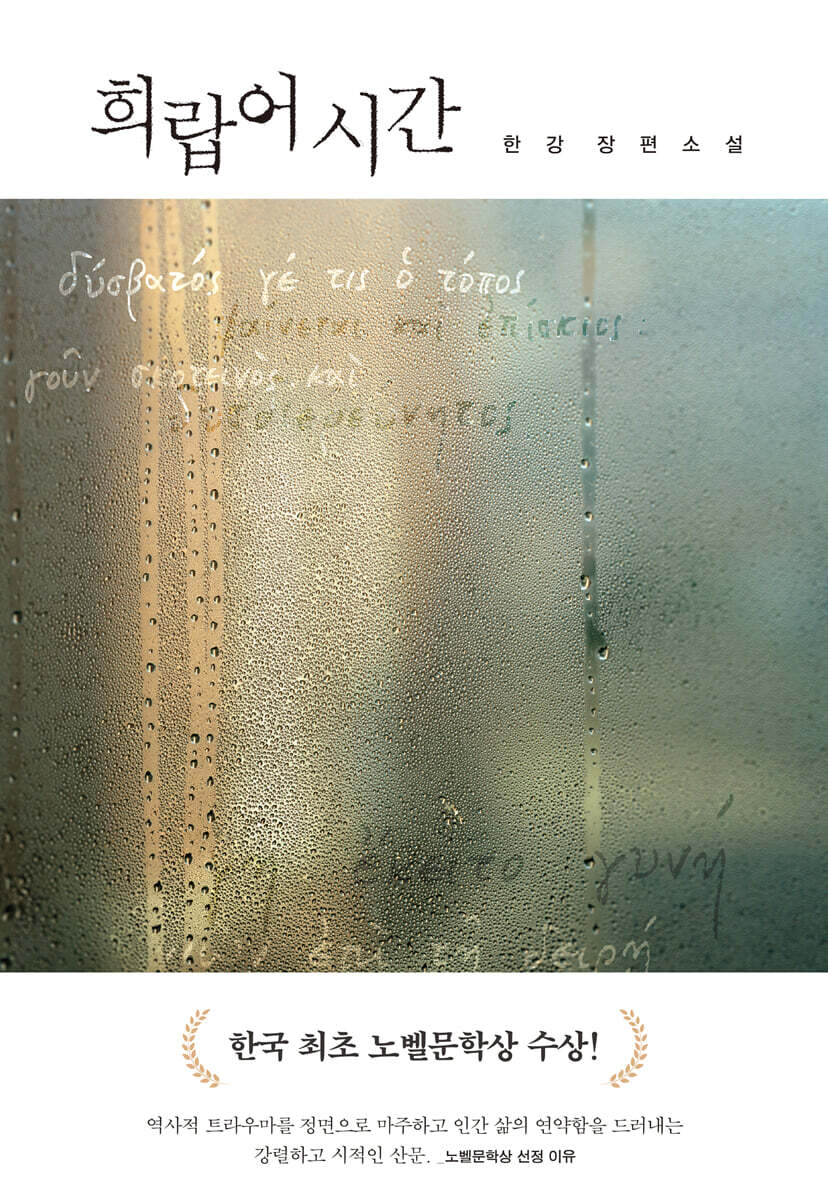 희랍어 시간
한강 장편소설
δύσβατός γέ τις ὁ τόπος
φαίνεται καί ἐπίσκιος :
γοῦν σκοτεινὸς καὶ
ἔκειτο γυνή
ἐπὶ τῇ δειρῇ
한국 최초 노벨문학상 수상!
역사적 트라우마를 정면으로 마주하고 인간 삶의 연약함을 드러내는
강렬하고 시적인 산문. _노벨문학상 선정 이유